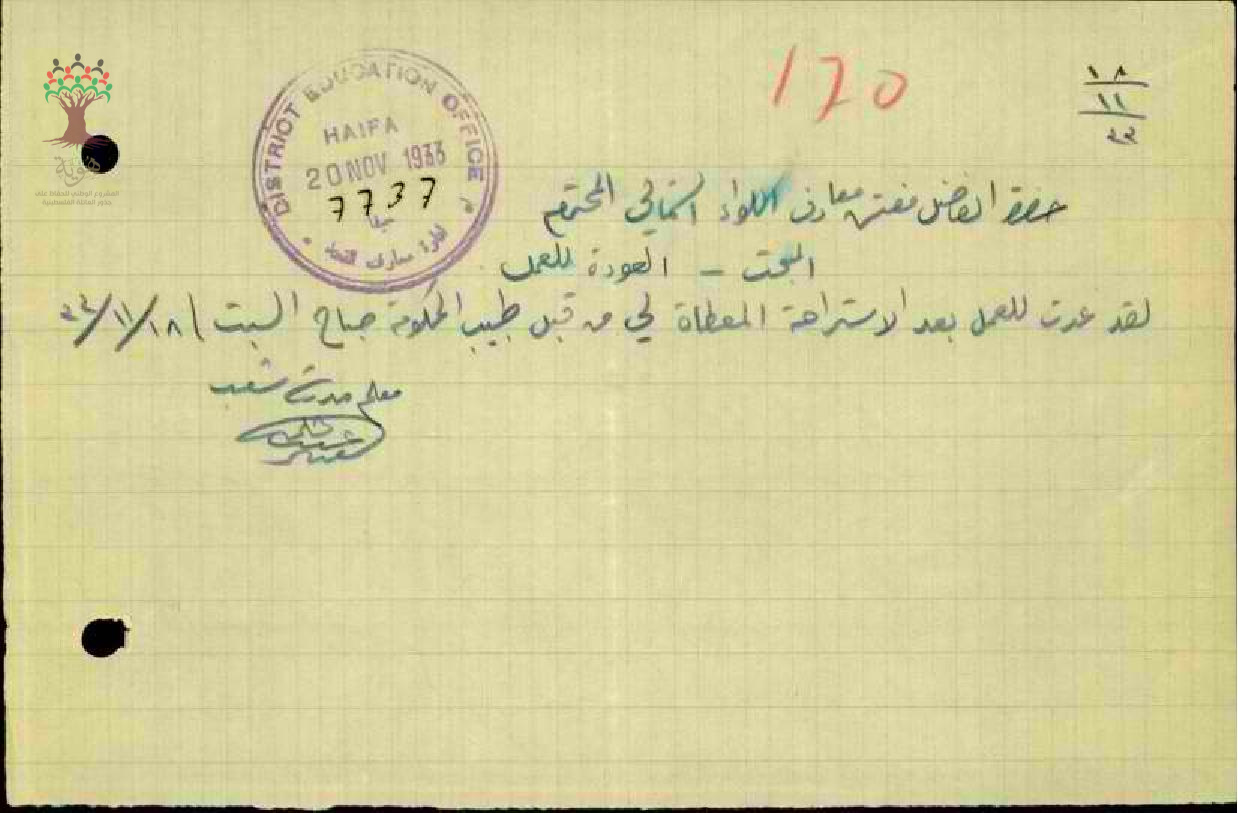 170
١٨
١١
٣٣
DISTRICT EDUCATION OFFICE
HAIFA
20 NOV 1933
7737
حيفا
ادارة معارف
هوية
المشروع الوطني للحفاظ على
جذور العائلة الفلسطينية
حضرة الفاضل مفتش معارف اللواء الشمالي المحترم
المبحث - العودة للعمل
لقد عدت للعمل بعد الاستراحة المعطاة لي من قبل طبيب الحكومة صباح السبت ١٨/١١/٣٣
معلم مدرسة شعب